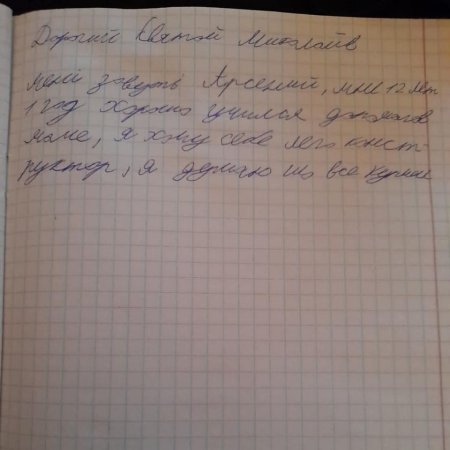 Дорогий Святой Миколайв
мені зовуть Арсений, мне 12 лет
1 год хорошо учился допомогав
маме, я хочу себе лего конст-
руктор, я думаю из все